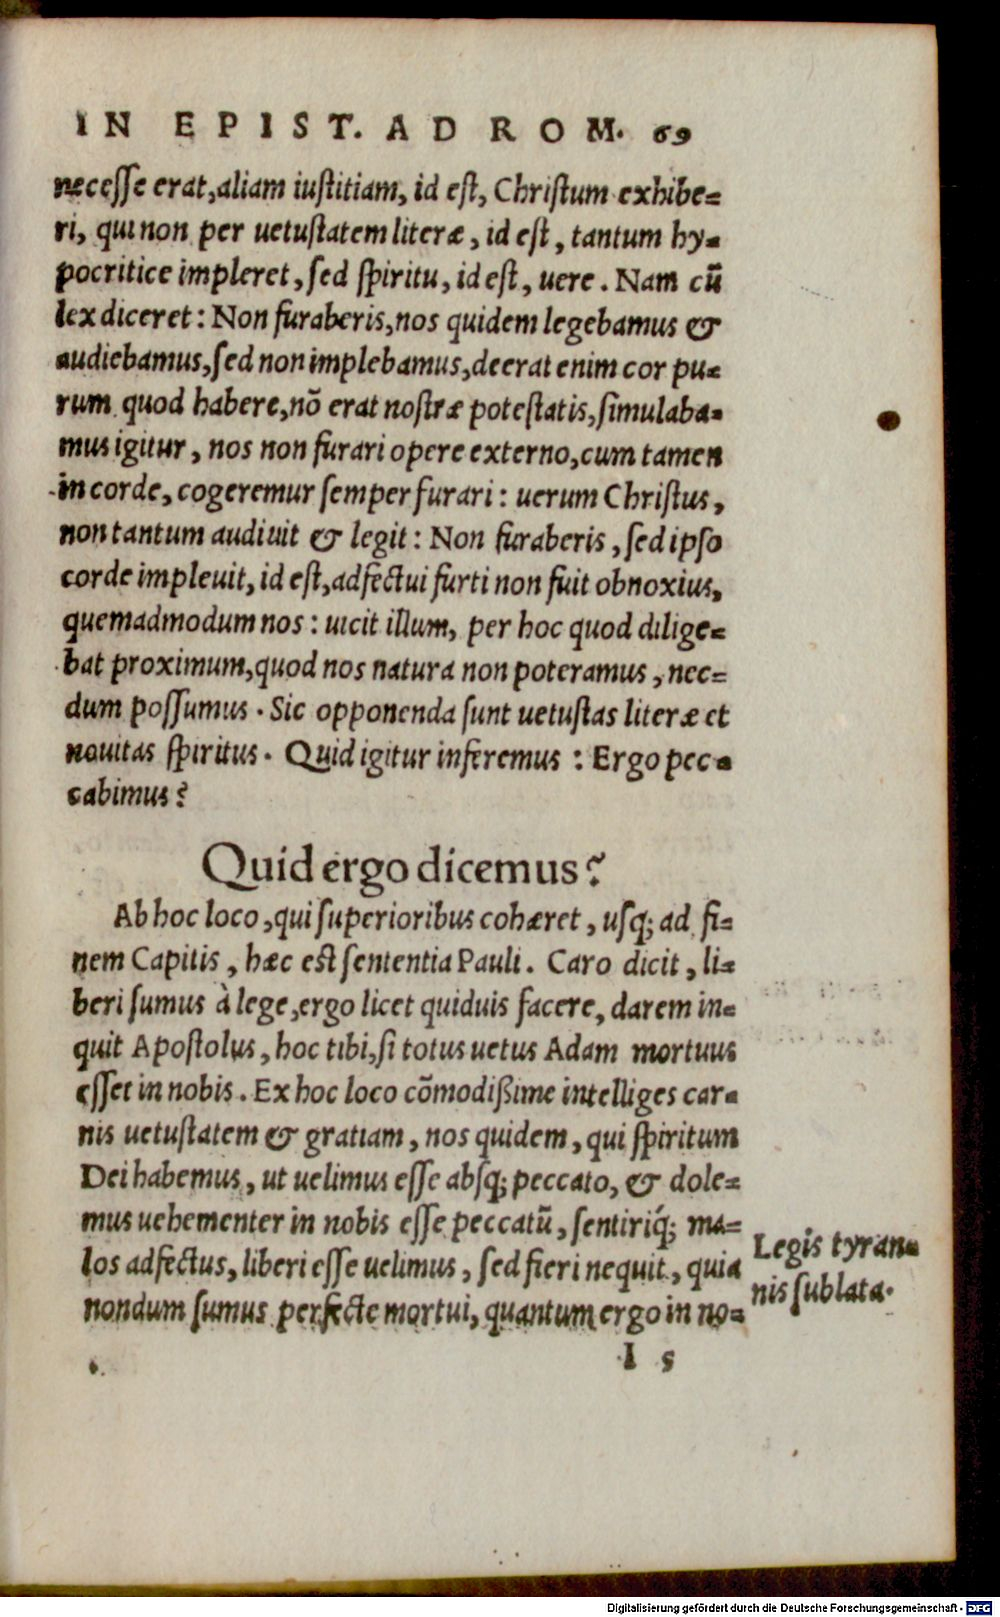 IN EPIST. AD ROM. 69
necesse erat, aliam iustitiam, id est, Christum exhibe=
ri, qui non per uetustatem literæ, id est, tantum hy=
pocritice impleret, sed spiritu, id est, uere. Nam cũ
lex diceret: Non furaberis, nos quidem legebamus &
audiebamus, sed non implebamus, deerat enim cor pu=
rum quod habere, nõ erat nostræ potestatis, simulaba=
mus igitur, nos non furari opere externo, cum tamen
in corde, cogeremur semper furari: uerum Christus,
non tantum audiuit & legit: Non furaberis, sed ipso
corde impleuit, id est, adfectui furti non fuit obnoxius,
quemadmodum nos: uicit illum, per hoc quod dilige=
bat proximum, quod nos natura non poteramus, nec=
dum possumus. Sic opponenda sunt uetustas literæ et
nouitas spiritus. Quid igitur inferemus: Ergo pec=
cabimus?
Quid ergo dicemus?
Ab hoc loco, qui superioribus cohæret, usq; ad fi=
nem Capitis, hæc est sententia Pauli. Caro dicit, li=
beri sumus à lege, ergo licet quiduis facere, darem in=
quit Apostolus, hoc tibi, si totus uetus Adam mortuus
esset in nobis. Ex hoc loco cõmodißime intelliges car=
nis uetustatem & gratiam, nos quidem, qui spiritum
Dei habemus, ut uelimus esse absq; peccato, & dole=
mus uehementer in nobis esse peccatũ, sentiriq́; ma=
los adfectus, liberi esse uelimus, sed fieri nequit, quia
nondum sumus perfecte mortui, quantum ergo in no=
Legis tyran=
nis sublata.
I 5
Digitalisierung gefördert durch die Deutsche Forschungsgemeinschaft - DFG